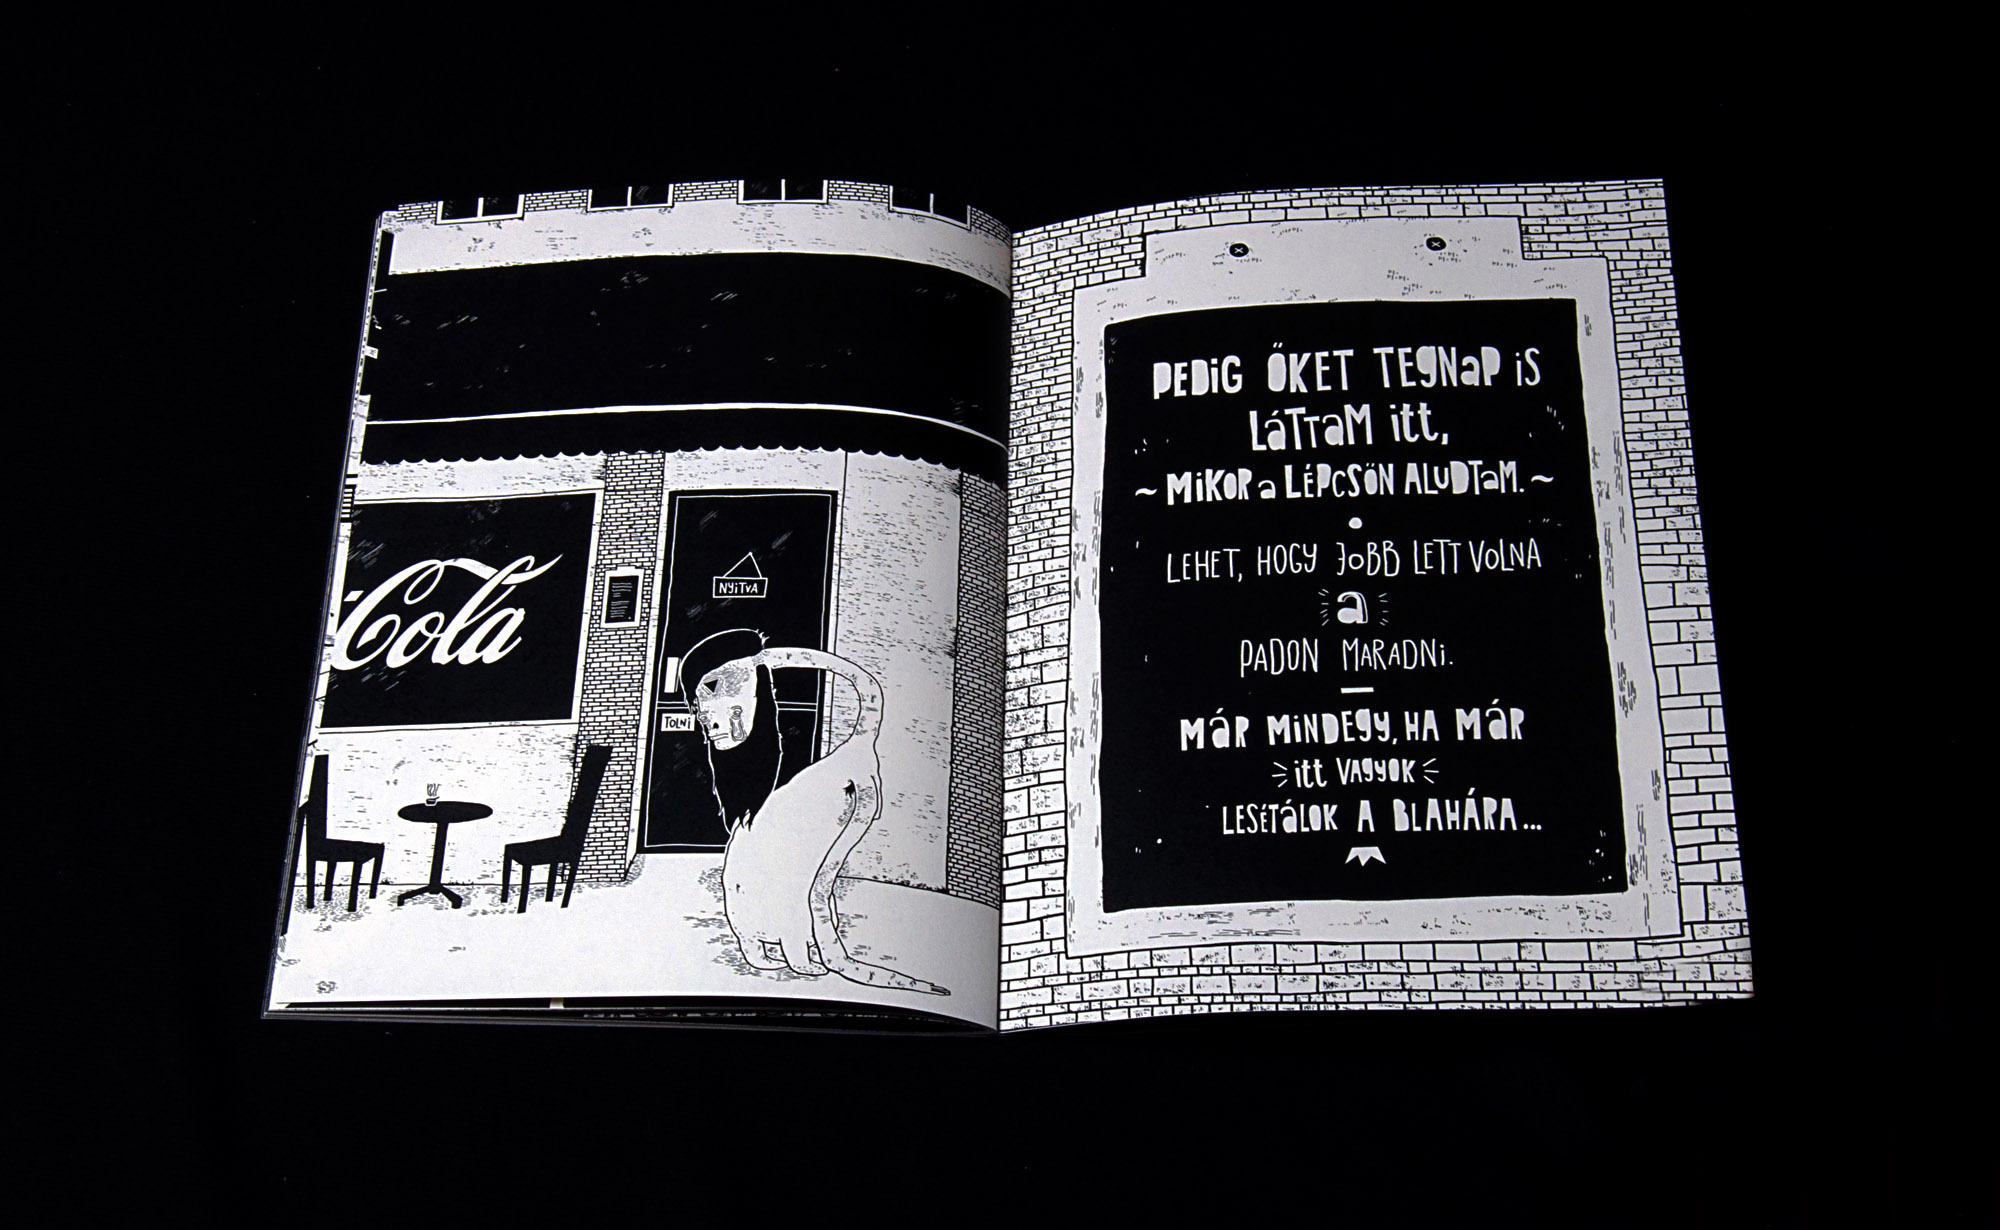 Cola
NYITVA
TOLNI
PEDIG ŐKET TEGNAP IS
LÁTTAM ITT,
~ MIKOR A LÉPCSŐN ALUDTAM. ~
LEHET, HOGY JOBB LETT VOLNA
A
PADON MARADNI.
MÁR MINDEGY, HA MÁR
ITT VAGYOK
LESÉTÁLOK A BLAHÁRA...